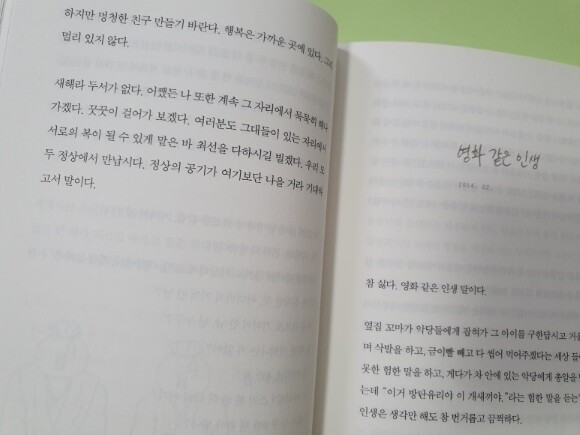 하지만 멍청한 친구 만들기 바란다. 행복은 가까운 곳에 있다.
멀리 있지 않다.
새해라 두서가 없다. 어쨌든 나 또한 계속 그 자리에서 묵묵히 해나
가겠다. 꿋꿋이 걸어가 보겠다. 여러분도 그대들이 있는 자리에서
서로의 복이 될 수 있게 맡은 바 최선을 다하시길 빌겠다. 우리 모
두 정상에서 만납시다. 정상의 공기가 여기보단 나을 거라 기대하
고서 말이다.
영화 같은 인생
2014. 02.
참 싫다. 영화 같은 인생 말이다.
옆집 꼬마가 악당들에게 잡혀가 그 아이를 구한답시고
며 삭발을 하고, 금이빨 빼고 다 씹어 먹어주겠다는 세상
못한 험한 말을 하고, 게다가 차 안에 있는 악당에게 총알을
는데 “이거 방탄유리야 이 개새끼야.”라는 험한 말을 듣는
인생은 생각만 해도 참 번거롭고 끔찍하다.